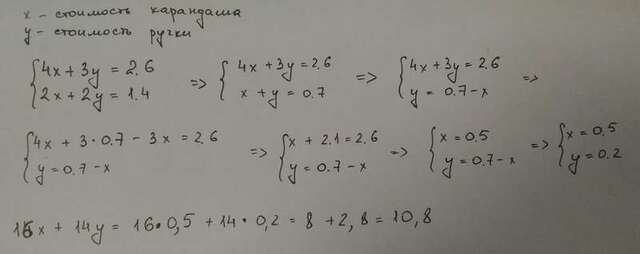 x – стоимость карандаша
y – стоимость ручки
{4x + 3y = 2.6 => {4x + 3y = 2.6 => {4x + 3y = 2.6 =>
{2x + 2y = 1.4 {x + y = 0.7 {y = 0.7 - x
{4x + 3·0.7 - 3x = 2.6 => {x + 2.1 = 2.6 => {x = 0.5 => {x = 0.5
{y = 0.7 - x {y = 0.7 - x {y = 0.7 - x {y = 0.2
16x + 14y = 16·0,5 + 14·0,2 = 8 + 2,8 = 10,8